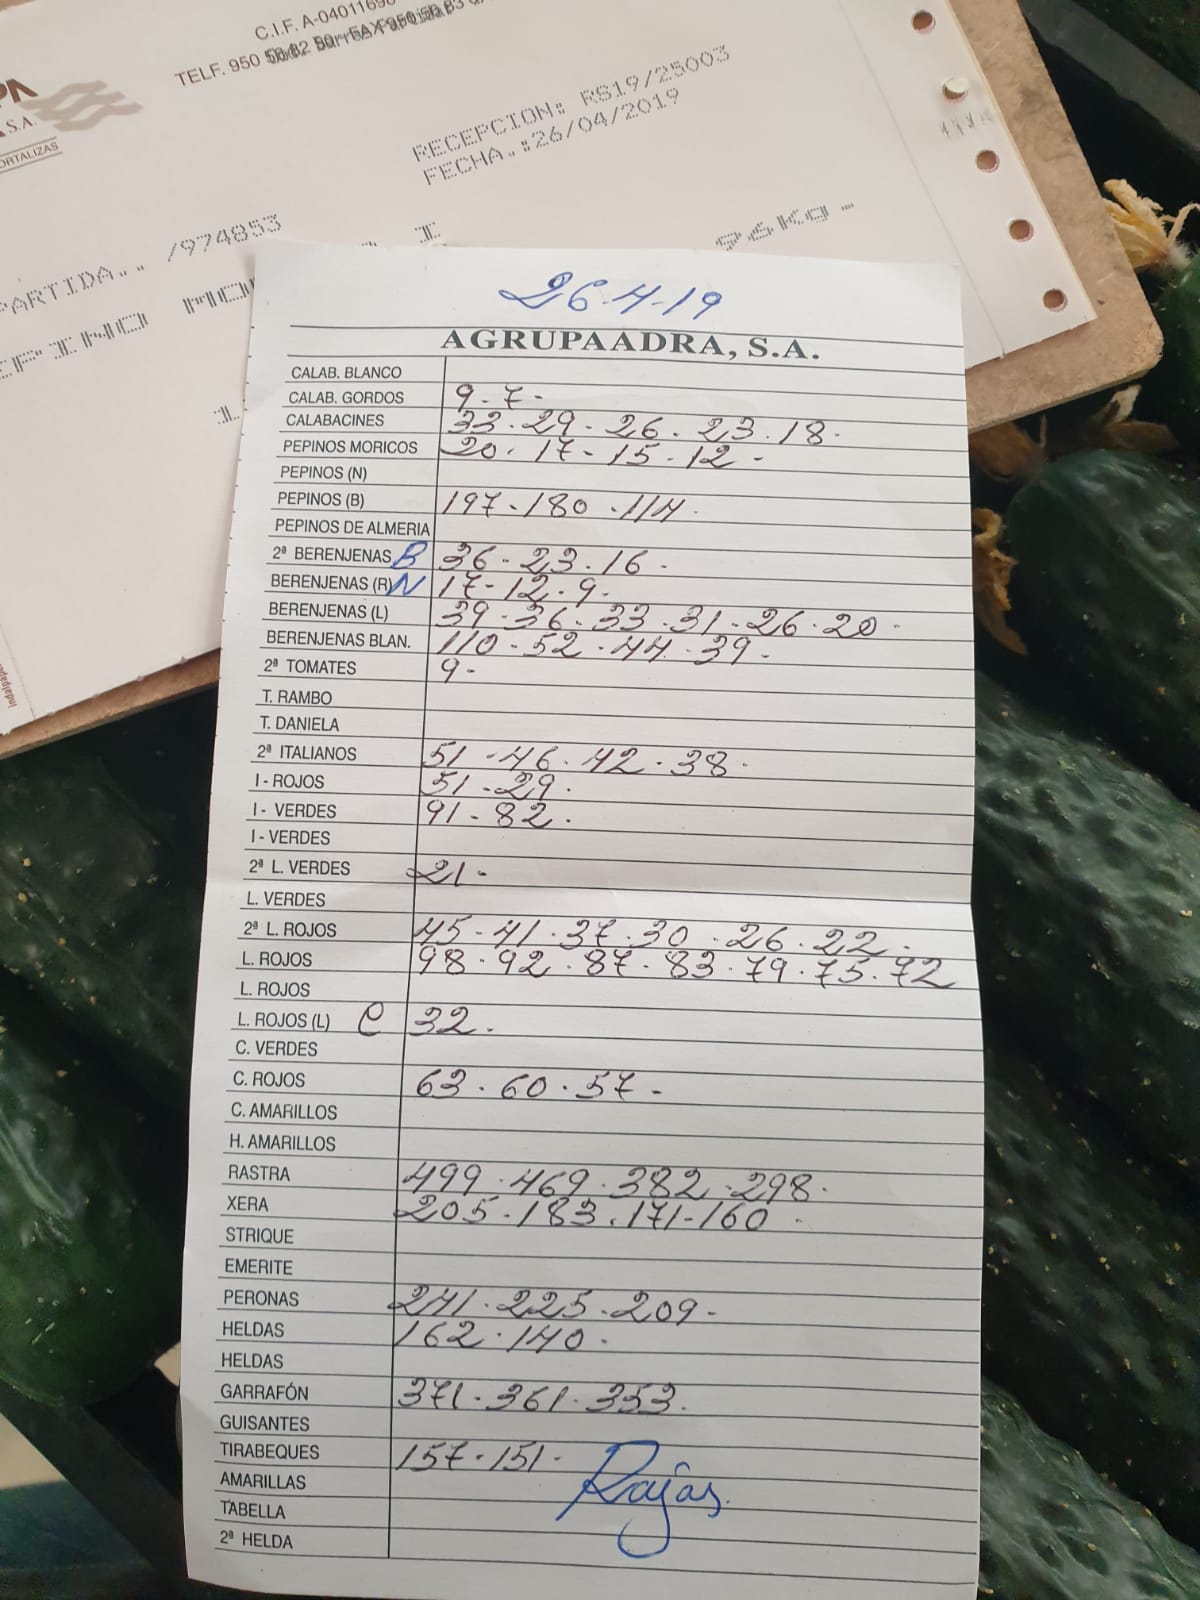 C.I.F. A-04011698
TELF. 950
RECEPCION: RS19/25003
FECHA.:26/04/2019
S.A.
ORTALIZAS
PARTIDA.. /974853
I
96Kg-
1
26-4-19
AGRUPAADRA, S.A.
CALAB. BLANCO
CALAB. GORDOS 9-7-
CALABACINES 33-29-26.23.18.
PEPINOS MORICOS 20.17-15.12-
PEPINOS (N)
PEPINOS (B) 197-180.114.
PEPINOS DE ALMERIA
2ª BERENJENAS B 36-23.16.
BERENJENAS (R) N 17-12.9.
BERENJENAS (L) 39.36.33.31-26.20-
BERENJENAS BLAN. 110-52.44.39-
2ª TOMATES 9-
T. RAMBO
T. DANIELA
2ª ITALIANOS 51-46.42.38.
I - ROJOS 51-29.
I - VERDES 91-82.
I - VERDES
2ª L. VERDES 21-
L. VERDES
2ª L. ROJOS 45-41.37.30.26.22.
L. ROJOS 98.92.87.83.79.75.72
L. ROJOS
L. ROJOS (L) C 32.
C. VERDES
C. ROJOS 63.60.57-
C. AMARILLOS
H. AMARILLOS
RASTRA 499.469.382.298.
XERA 205.183.171-160.
STRIQUE
EMERITE
PERONAS 241.225.209-
HELDAS 162.140.
HELDAS
GARRAFÓN 371-361.353.
GUISANTES
TIRABEQUES 157.151.
Rajas.
AMARILLAS
TABELLA
2ª HELDA